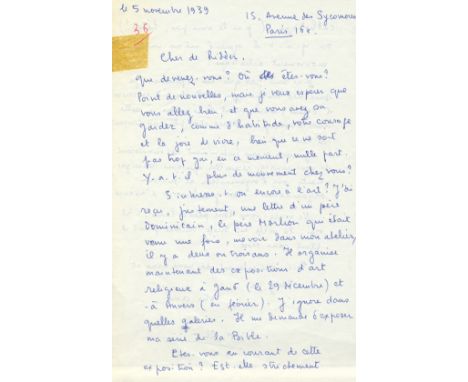 le 5 novembre 1939
15. Avenue des Sycomores
Paris 16e.
36
Cher de Ridder.
que devenez-vous? Où êtes-vous?
Point de nouvelles, mais je veux espérer que
vous allez bien, et que vous avez su
garder, comme d'habitude, votre courage
et la joie de vivre, bien que ce ne soit
pas trop gai, en ce moment, nulle part.
Y-a-t-il plus de mouvement chez vous?
S'intéresse-t-on encore à l'art? J'ai
reçu, justement, une lettre d'un père
Dominicain, le père Morlion qui était
venu une fois, me voir dans mon atelier,
il y a deux ou trois ans. Il organise
maintenant des expositions d'art
religieux à Gand (le 29 décembre) et
à Anvers (en février). J'ignore dans
quelles galeries. Il me demande d'exposer
ma série de la Bible.
Etes-vous au courant de cette
exposition? Est-elle strictement